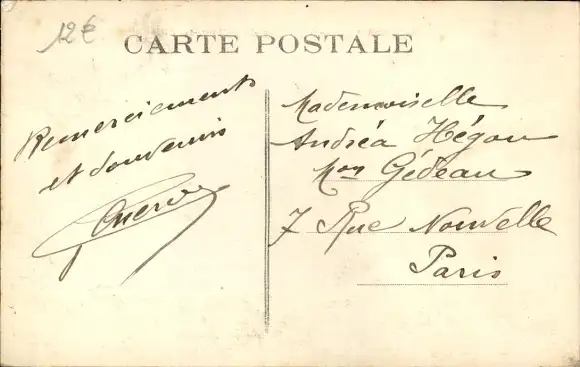 12€
CARTE POSTALE
Remerciements
et Souvenirs
Mademoiselle
Andréa Hégon
Mon Gédeau
7 Rue Nouvelle
Paris